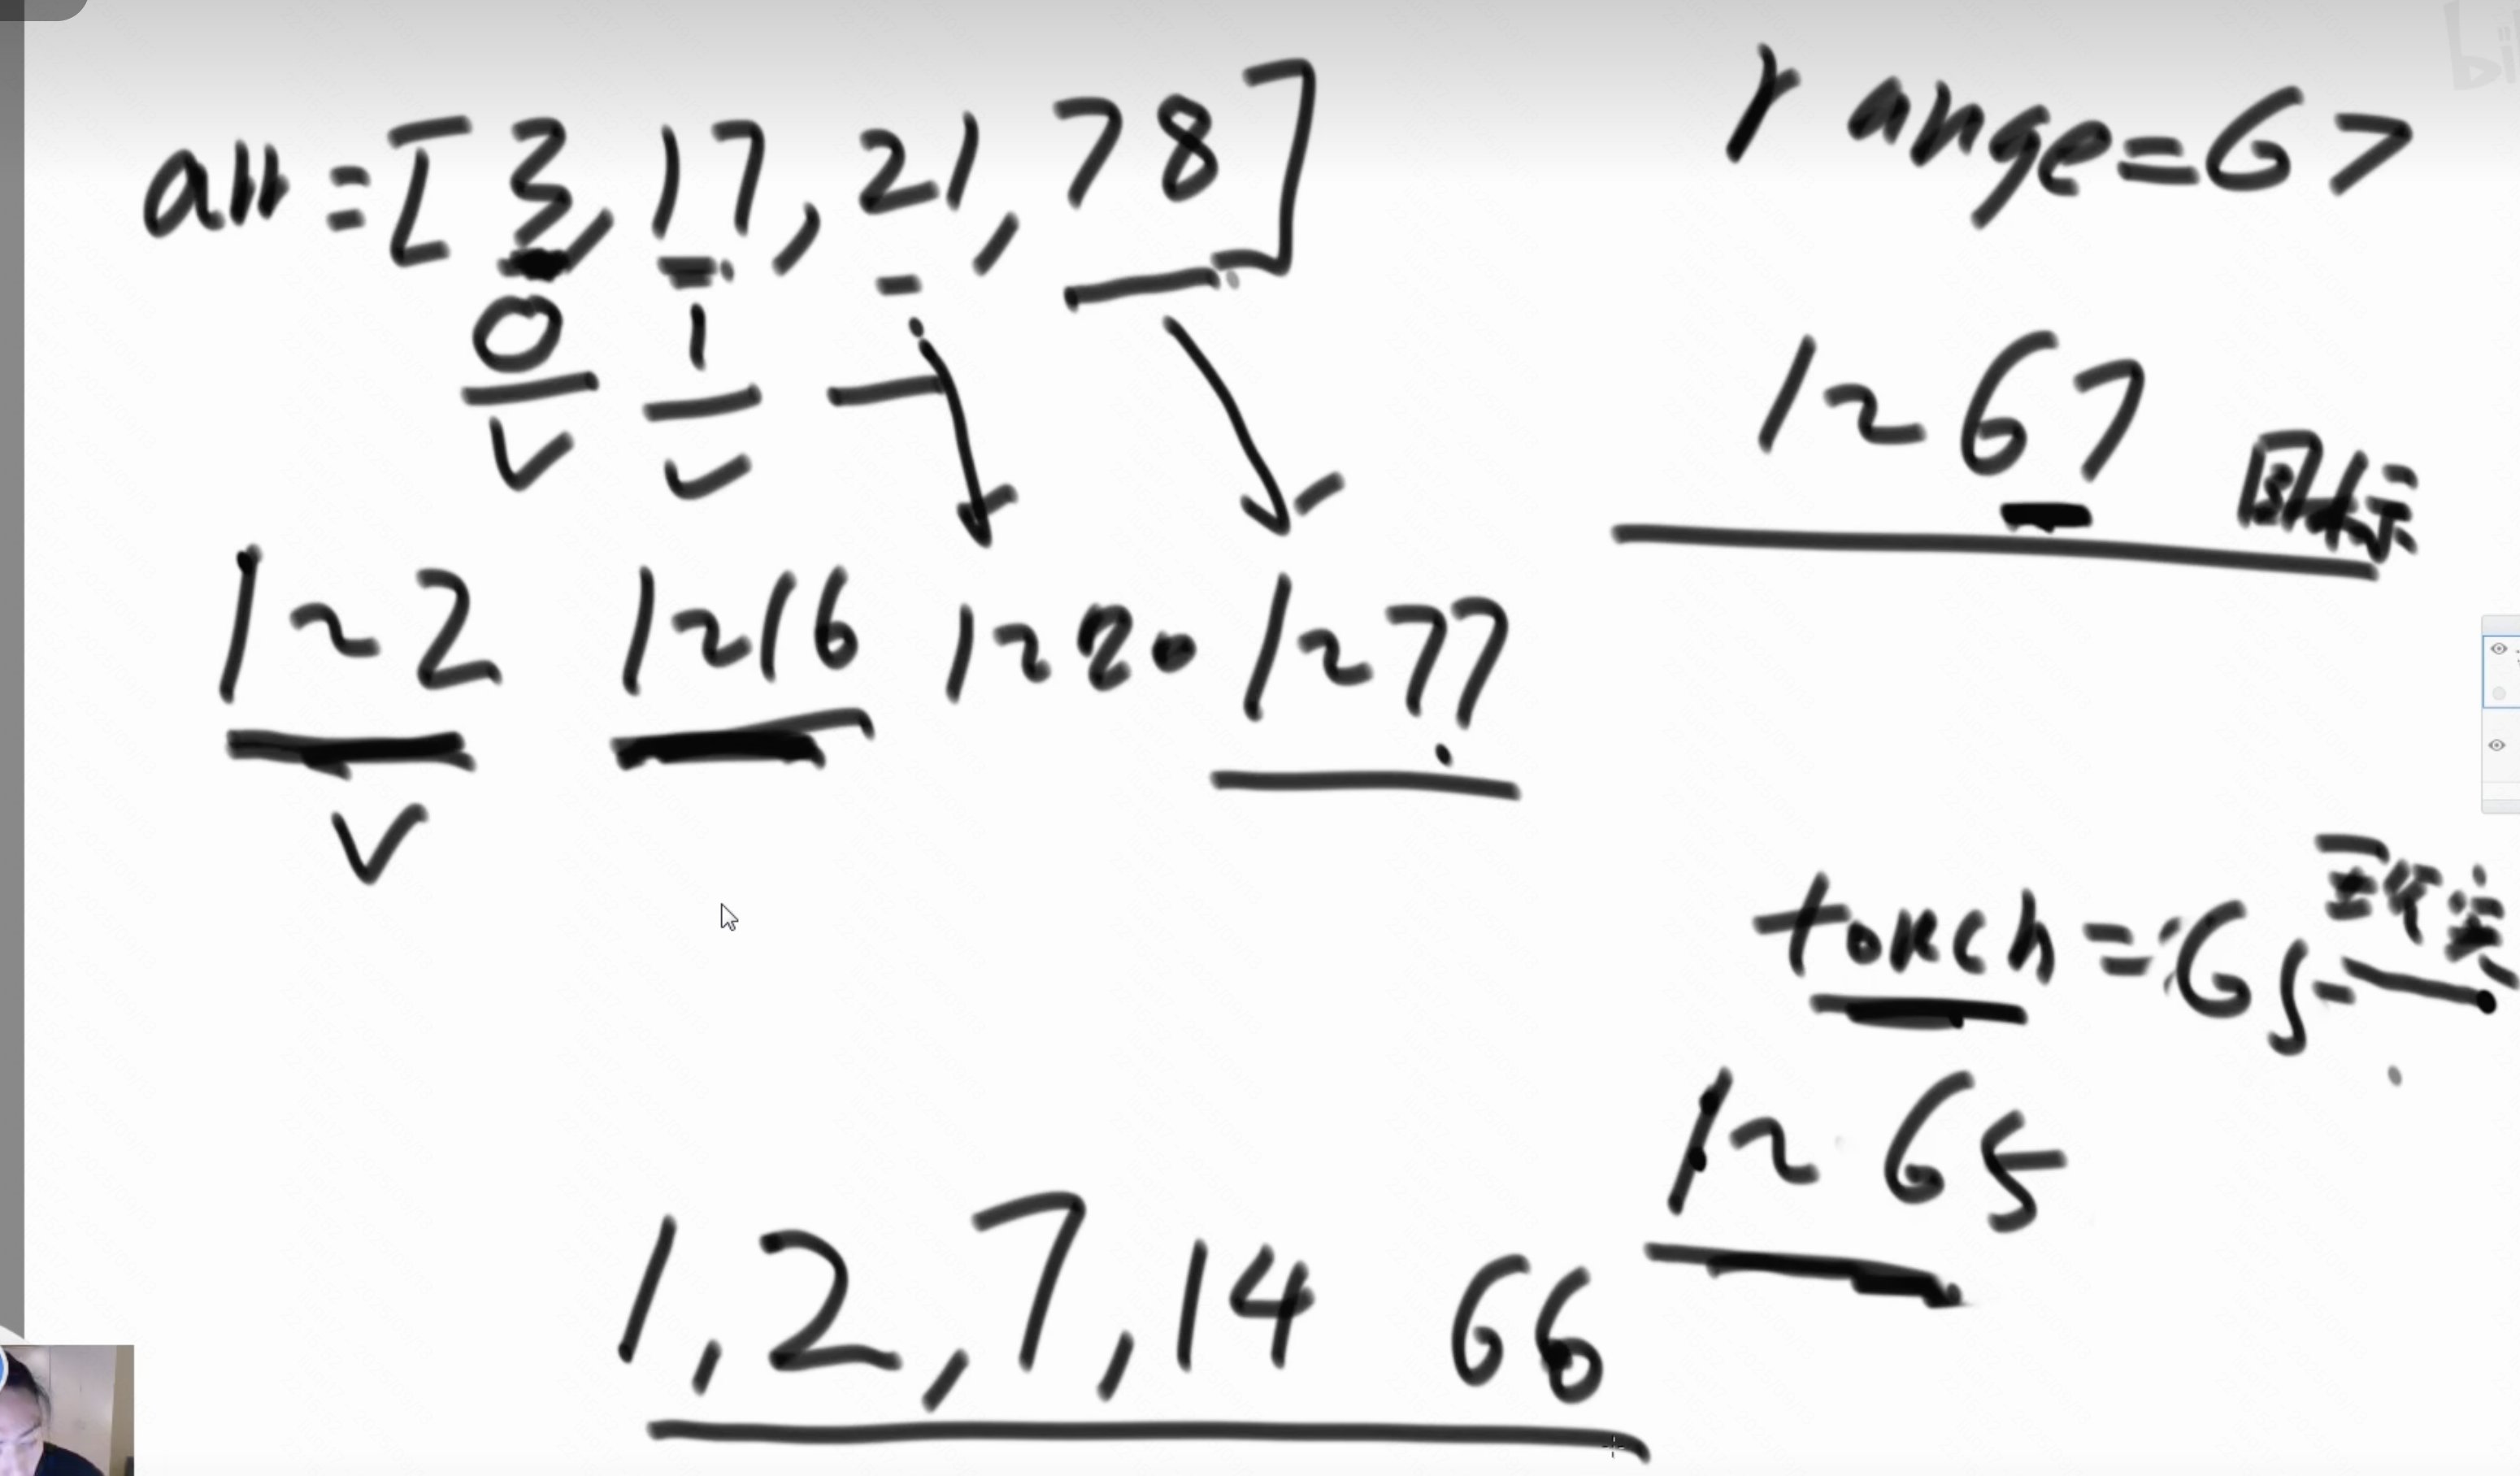 arr = [3, 17, 21, 78]
range = 67
0 1
1~67 目标
1~2 1~16 1~20 1~77
touch = 65
1~65
1, 2, 7, 14 66
bili